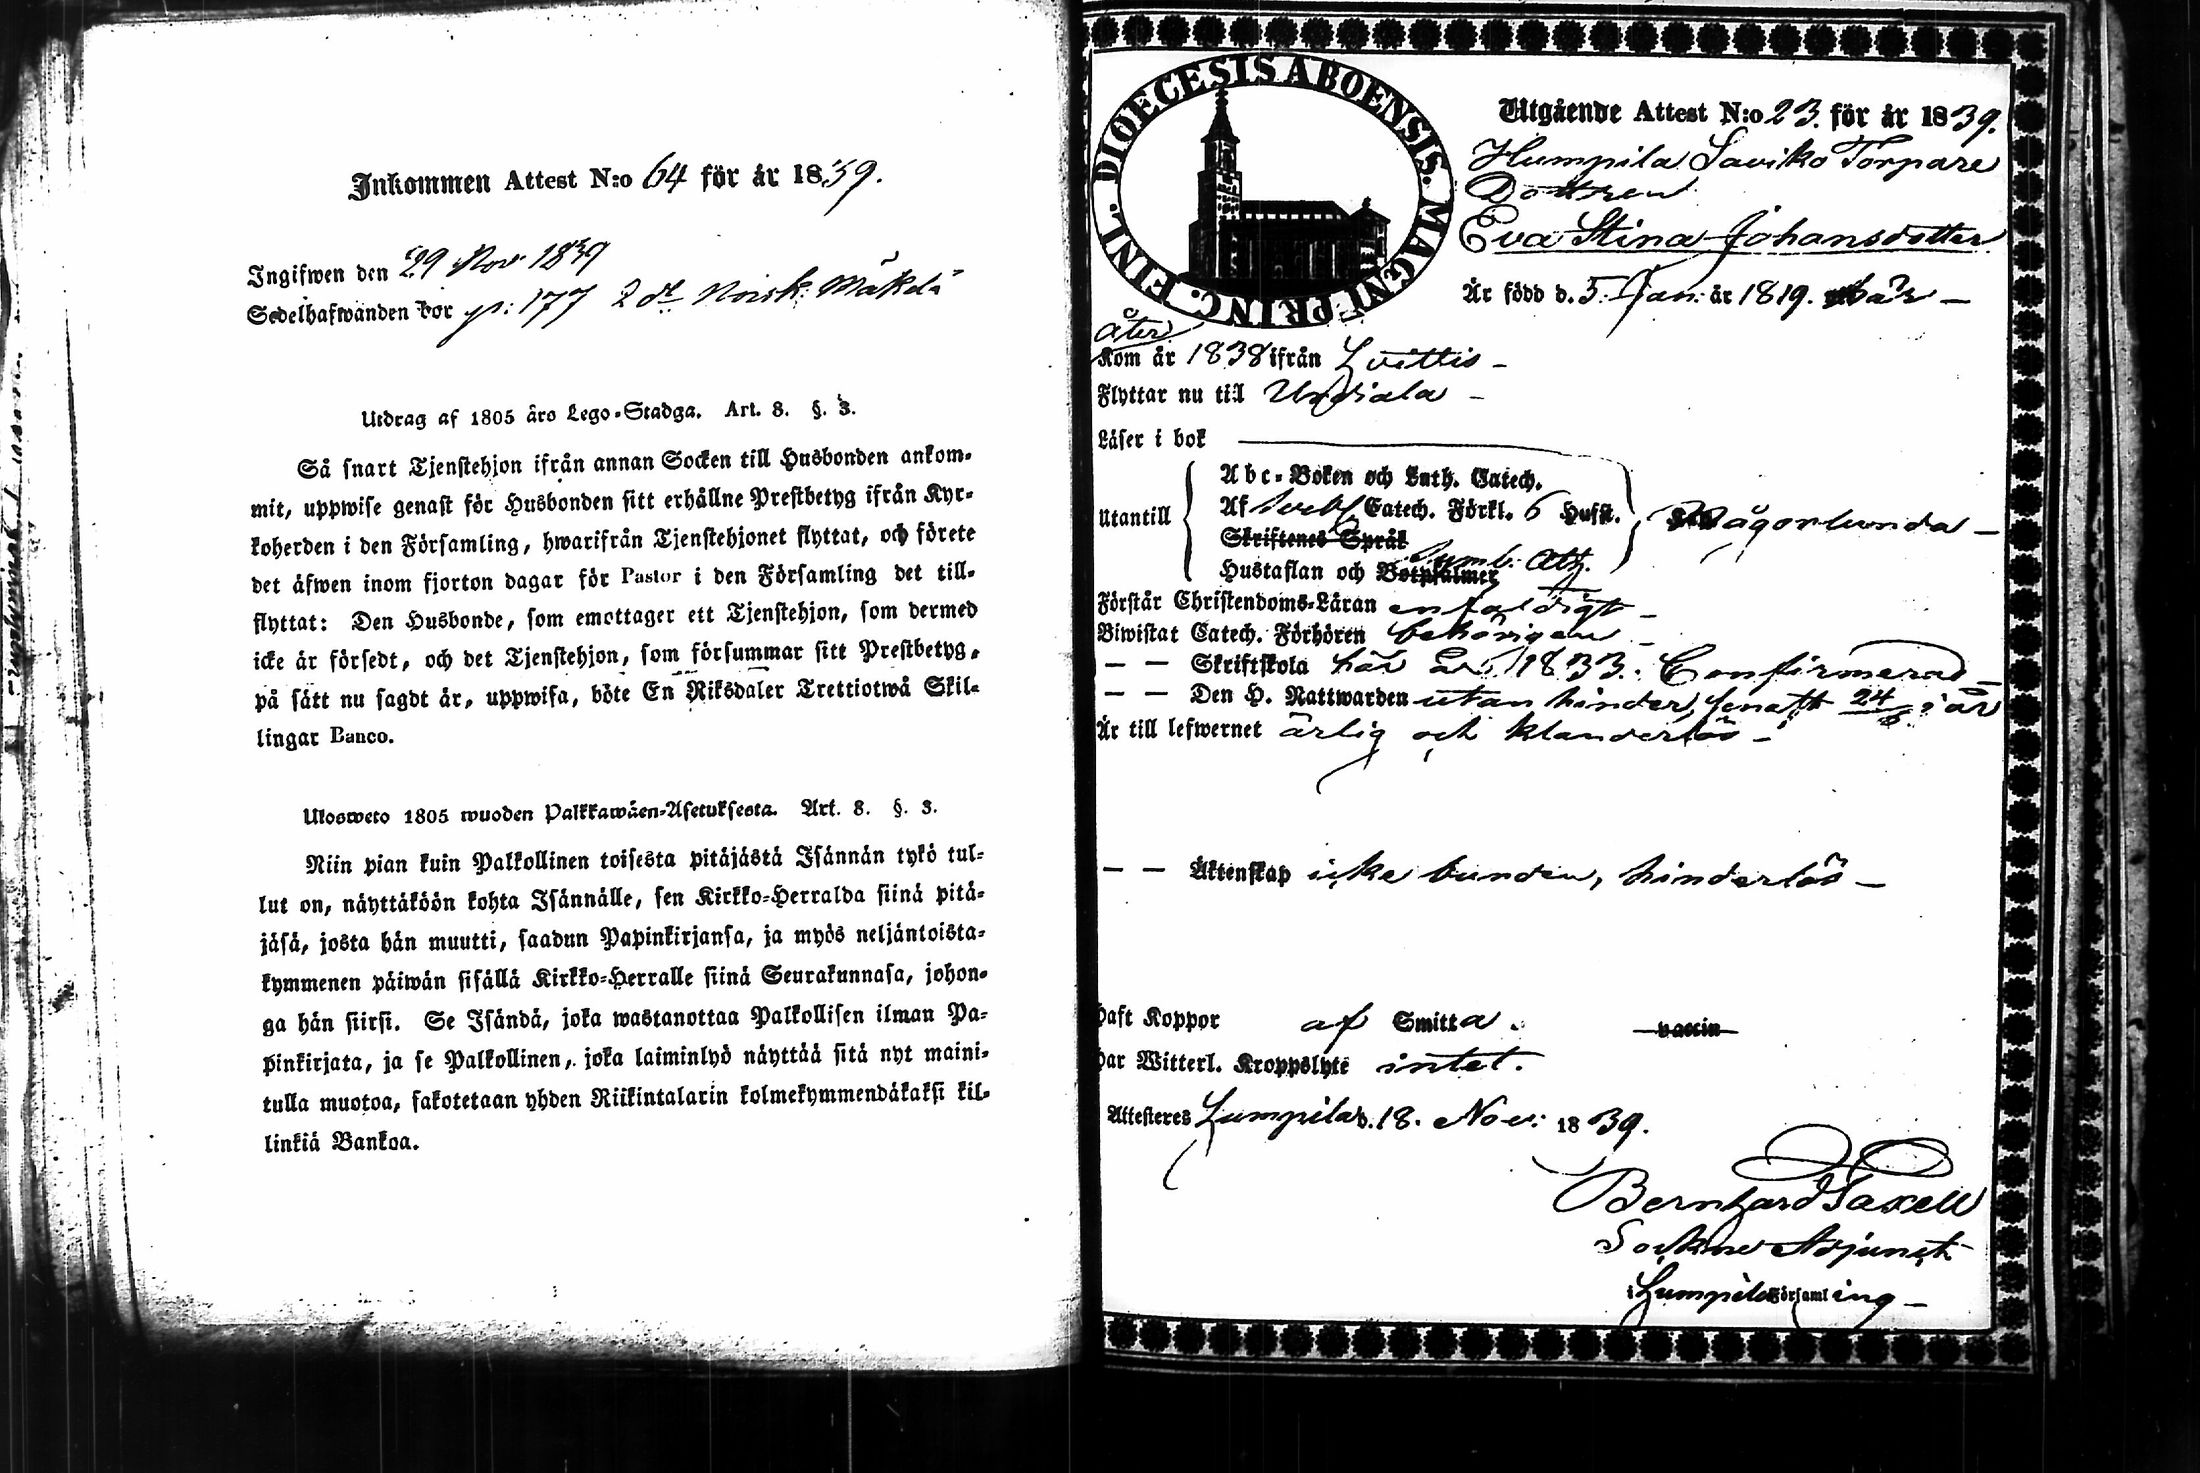 Inkommen Attest N:o 64 för år 1839.
Ingifwen den 29 Nov 1839
Sedelhafwanden bor p: 177 2 dl
Utdrag af 1805 års Lego-Stadga. Art. 8. §. 3.
Så snart Tjenstehjon ifrån annan Socken till Husbonden ankom-
mit, uppwise genast för Husbonden sitt erhållne Prestbetyg ifrån Kyr-
koherden i den Församling, hwarifrån Tjenstehjonet flyttat, och förete
det äfwen inom fjorton dagar för Pastor i den Församling det till-
flyttat: Den Husbonde, som emottager ett Tjenstehjon, som dermed
icke är försedt, och det Tjenstehjon, som försummar sitt Prestbetyg,
på sätt nu sagdt är, uppwisa, böte En Riksdaler Trettiotwå Skil-
lingar Banco.
Ulosweto 1805 wuoden Palkkawäen-Asetuksesta. Art. 8. §. 3.
Niin pian kuin Palkollinen toisesta pitäjästä Isännän tykö tul-
lut on, näyttäköön kohta Isännälle, sen Kirkko-Herralda siinä pitä-
jäsä, josta hän muutti, saadun Papinkirjansa, ja myös neljäntoista-
kymmenen päiwän sisällä Kirkko-Herralle siinä Seurakunnasa, johon-
ga hän siirsi. Se Isändä, joka wastanottaa Palkollisen ilman Pa-
pinkirjata, ja se Palkollinen, joka laiminlyö näyttää sitä nyt maini-
tulla muotoa, sakotetaan yhden Riikintalarin kolmekymmendäkaksi kil-
linkiä Bankoa.
DIOECESIS ABOENSIS. MAGNI PRINC. FINL.
Utgående Attest N:o 23. för år 1839.
Humpila Saviko Torpare
Dottren
Eva Stina Johansdotter
Är född d. 5. Jan. år 1819. här –
åter
Kom år 1838 ifrån Loittis –
Flyttar nu till Urdiala –
Läser i bok
Abc-Boken och Luth. Catech.
Utantill Af Sveb. Catech. Förkl. 6 Hufst. någorlunda –
Skriftenes Språk
Symb. Ath.
Hustaflan och Botpsalmer
Förstår Christendoms-Läran enfaldigt –
Biwistat Catech. Förhören behörigen –
– – Skriftskola här år 1833. Confirmerad –
– – Den H. Nattwarden utan hinder, senast 24/6 i år
Är till lefwernet ärlig och klanderlös –
– – Äktenskap icke bunden, hinderlös –
Haft Koppor af Smitta. vaccin
Har Witterl. Kroppslyte intet.
Attesteres Humpila d. 18. Nov: 1839.
Bernhard Taxell
Sockne Adjunct
i Humpila Församling –